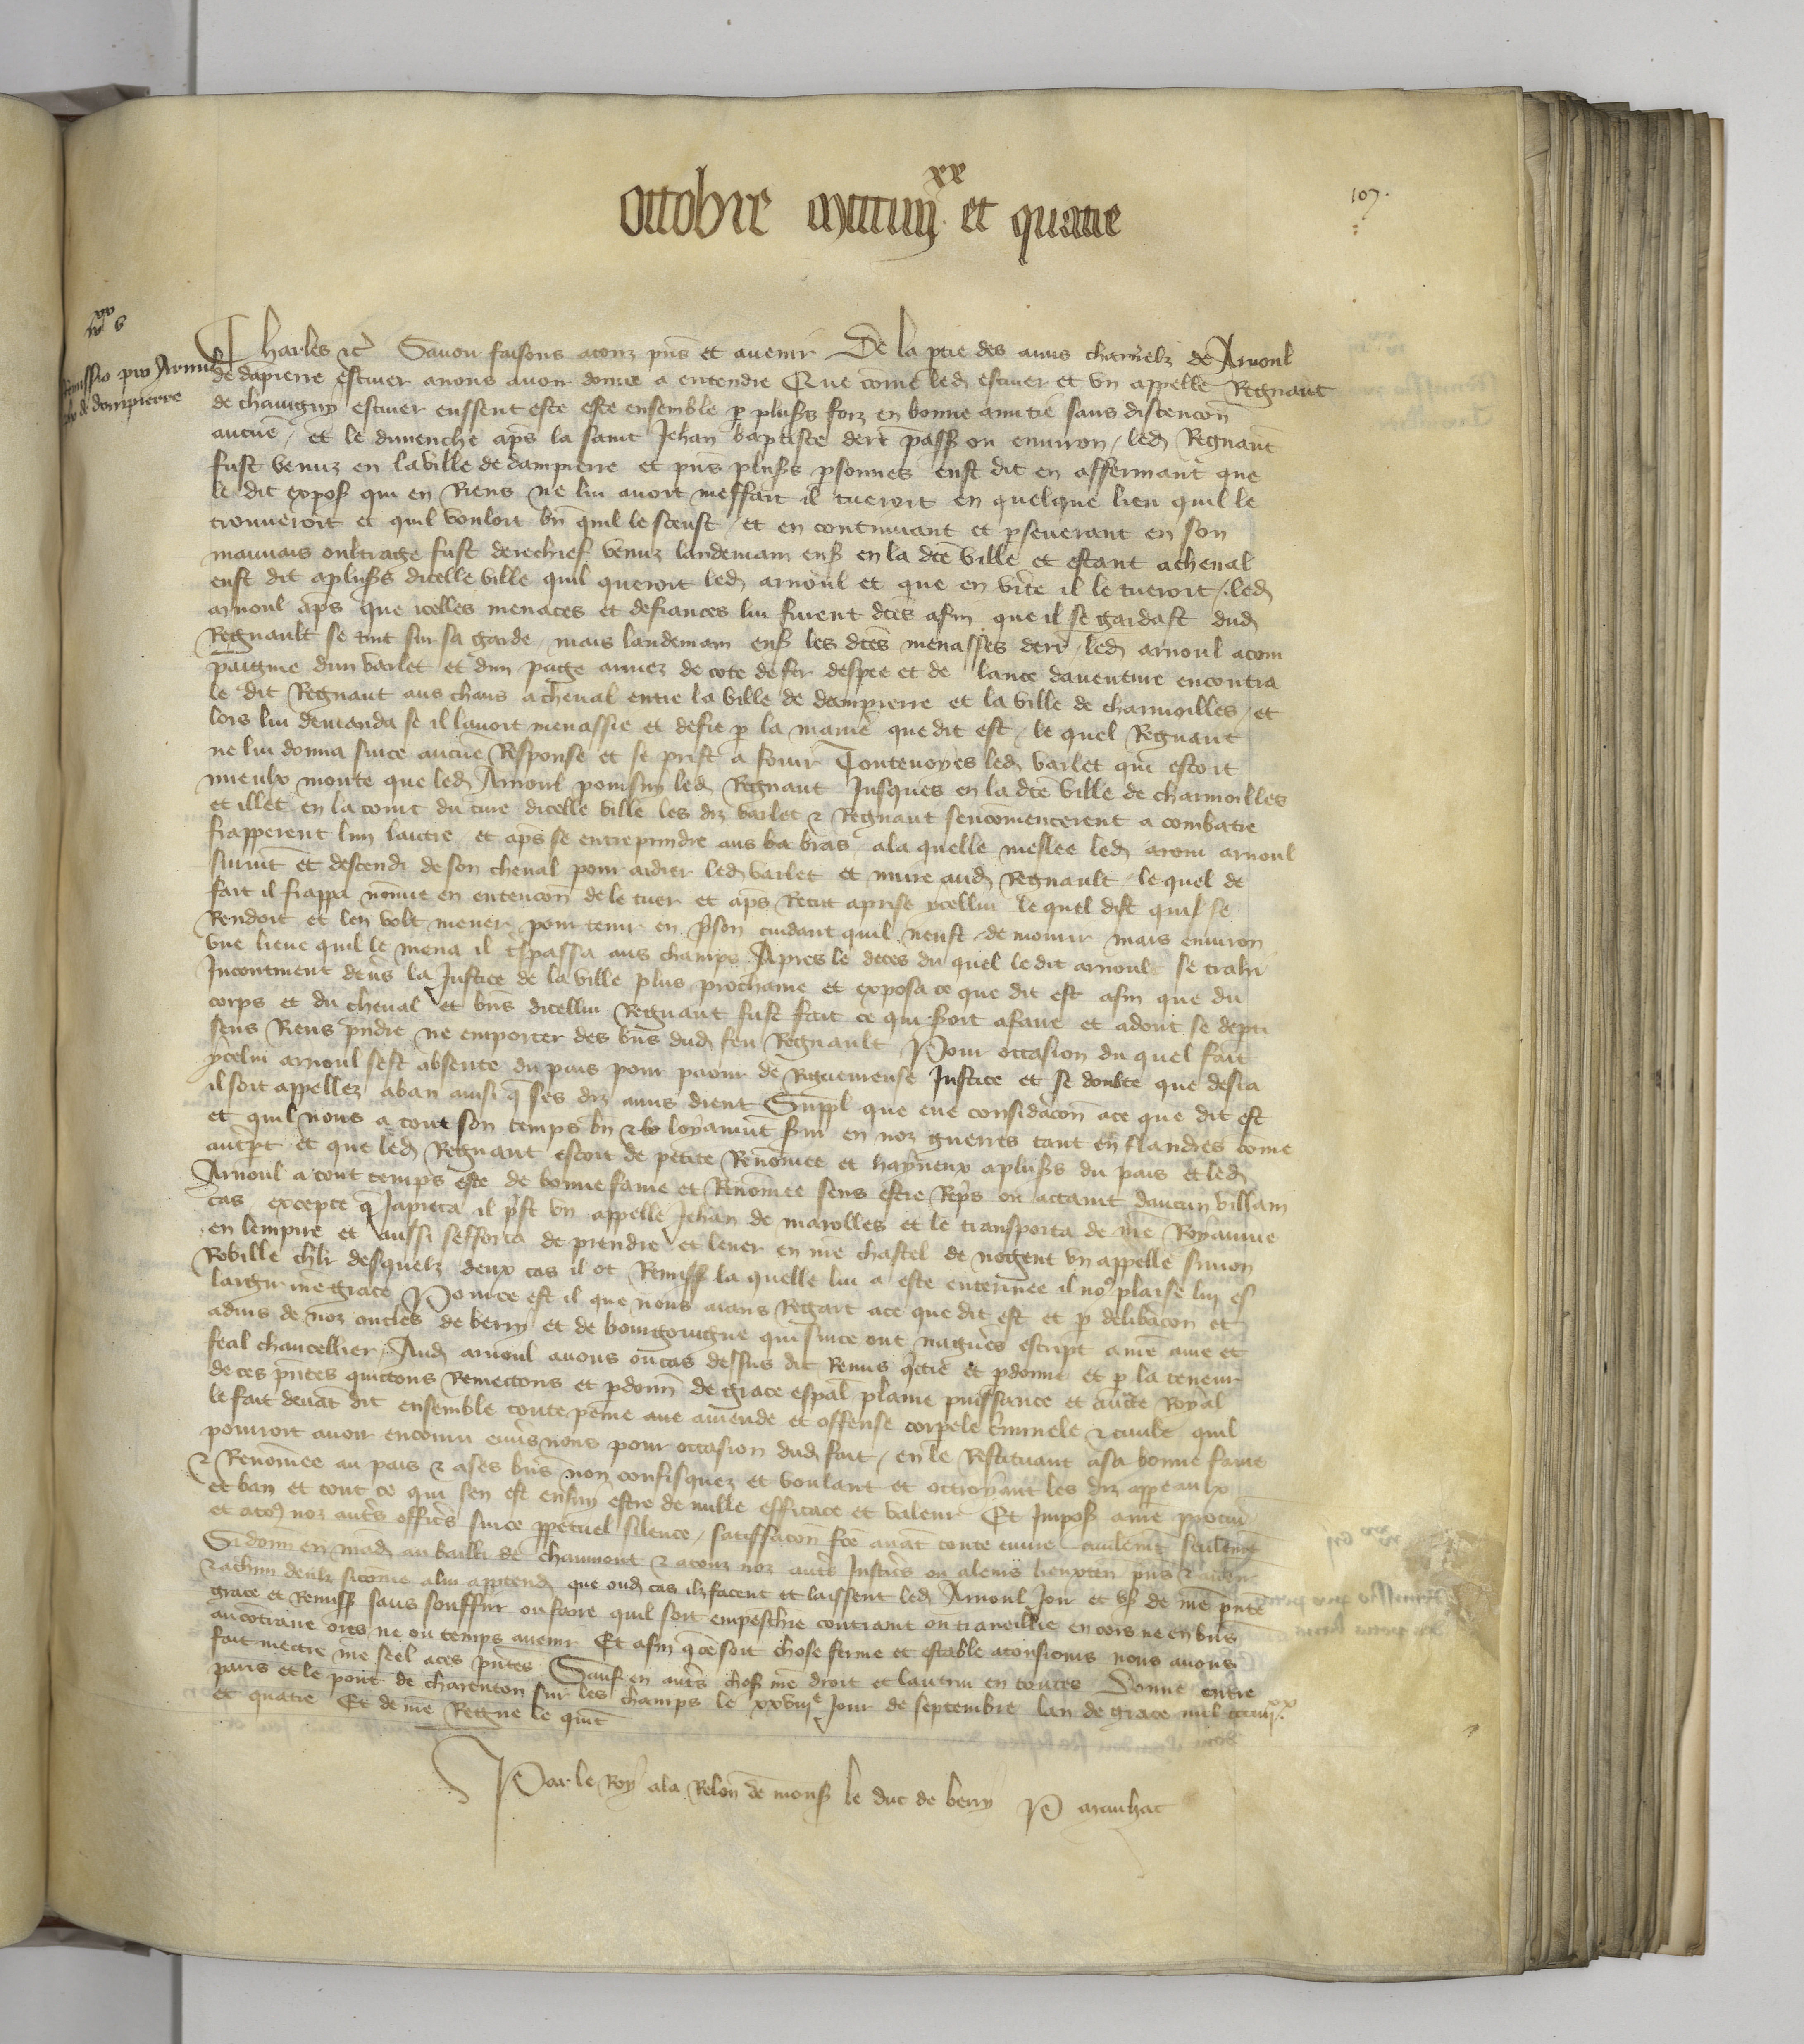 Ottobre mil CCC IIII xx et quatre
107.
Charles etc Savoir faisons a touz pns et avenir De la ptie des amis charnelz de Arnoul
Remissio pro Arnul
de dapierre escuier a nous avoir donne a entendre Que come led escuier et un appelle Regnaut
de dompierre
de chauigny escuier eussent este este ensemble p plus foiz en bonne amitie sans discencon
aucune / et le dimenche aps la saint Jehan baptiste derr pass ou environ / led Regnaut
fust venuz en la ville de dampierre et pns plus psonnes eust dit en affermant que
le dit expos qui en Riens ne lui avoit meffait il tueroit en quelque lieu quil le
trouveroit et quil vouloit bn quil le sceust / et en continuant et pseverant en son
mauvais oultrage fust derechief venuz landemain ens en la dce ville et estant a cheval
eust dit a plus dicelle ville quil queroit led arnoul et que en vite il le tueroit / led
arnoul aps que icelles menaces et defiances lui furent dces afin que il se gardast dud
Regnault se tint sur sa garde / mais landemain ens les dces menasses derr / led arnoul acom
paigne dun varlet et dun page armez de cote de fer despee et de lance daventure encontra
le dit Regnaut aus chans a cheval entre la ville de dampierre et la ville de charmoilles / et
lors lui demanda se il lavoit menassie et defie p la manie que dit est / le quel Regnaut
ne lui donna sur ce aucune Response et se prist a fouir Toutevoyes led varlet qui estoit
mieulx monte que led Arnoul poursuy led Regnaut Jusques en la dce ville de charmoilles
et illec en la court du cure dicelle ville les diz varlet et Regnaut sencomencerent a combatre
frapperent lun lautre / et aps se entreprindre aus bras / a la quelle meslee led arnoul
survint et descendi de son cheval pour aidier led varlet et nuire aud Regnault / le quel de
fait il frappa non mie en entencon de le tuer et aps Recut a prise ycellui le quel dist quil se
Rendoit et len volt mener pour tenir en prison cuidant quil neust de mourir mais environ
une lieue quil le mena il trespassa aus champs Apres le deces du quel le dit arnoult se trahi
Incontinent devs la Justice de la ville plus prochaine et exposa ce que dit est afin que du
corps et du cheval et bns dicellui Regnaut fust fait ce qui soit a faire et adont se depti
sens Riens pndre ne emporter des bns dud feu Regnault Pour occasion du quel fait
ycelui arnoul sest absente du pais pour paour de Rigueureuse Justice et se doubte que desia
il soit appellez a ban ainsi q ses diz amis dient Suppl que eue considacon a ce que dit est
et quil nous a tout son temps bn et loyaumt svi en noz guerres tant en flandres come
autrpt et que led Regnaut estoit de petite Renomee et hayneux a plus du pais et led
Arnoul a tout temps este de bonne fame et Renomee sens estre Repris ou actaint daucun villain
cas excepte q Ja pieca il prist un appelle Jehan de marolles et le transporta de nre Royaume
en lempire et aussi sefforca de prendre et lever en nre chastel de nogent un appelle simon
Roville chlr desquelz deux cas il ot Remiss la quelle lui a este enterinee il nos plaise lui es
largir nre grace Pour ce est il que nous aians Regart a ce que dit est et p delibacon et
advis de noz oncles de berry et de bourgoingne qui sur ce ont nagueres escript a nre ame et
feal chancellier / Aud arnoul avons ou cas dessus dit Remis quictie et pdonne et p la teneur
de ces pntes quictons Remectons et pdonn de grace espal plaine puissance et aucte Royal
le fait devat dit ensemble toute peine ave amende et offense corpele criminele et civile quil
pouroit avoir encouru envs nous pour occasion dud fait / en le Restituant a sa bonne fame
et Renomee au pais et a ses bns non confisquez et voulant et octroyant les diz appeaulx
et ban et tout ce qui sen est ensuy estre de nulle efficace et valeur Et Impos a nre procur
et a toz noz autrs officrs sur ce ppetuel silence / satiffacon fce avat toute euvre civilemt seulemt
Si donn en mad au bailli de chaumont et a touz noz autrs Justicrs ou a leurs lieuxten pns et avenir
et a chun deulz si come a lui apptend que oud cas ilz facent et laissent led Arnoul Joir et us de nre pnte
grace et Remiss sans souffrir ou faire quil soit empeschie contraint ou traveillie en corps ne en bns
au cotraire ores ne ou temps avenir Et afin q ce soit chose ferme et estable a tousiours nous avons
fait mectre nre seel a ces pntes Sauf en autrs chos nre droit et lautrui en toutes Donne entre
paris et le pont de charenton sur les champs le xxviiie Jour de septembre lan de grace mil ccc iiii xx
et quatre Et de nre Regne le quit
Par le Roy a la Relon de mons le duc de berry P mauhac